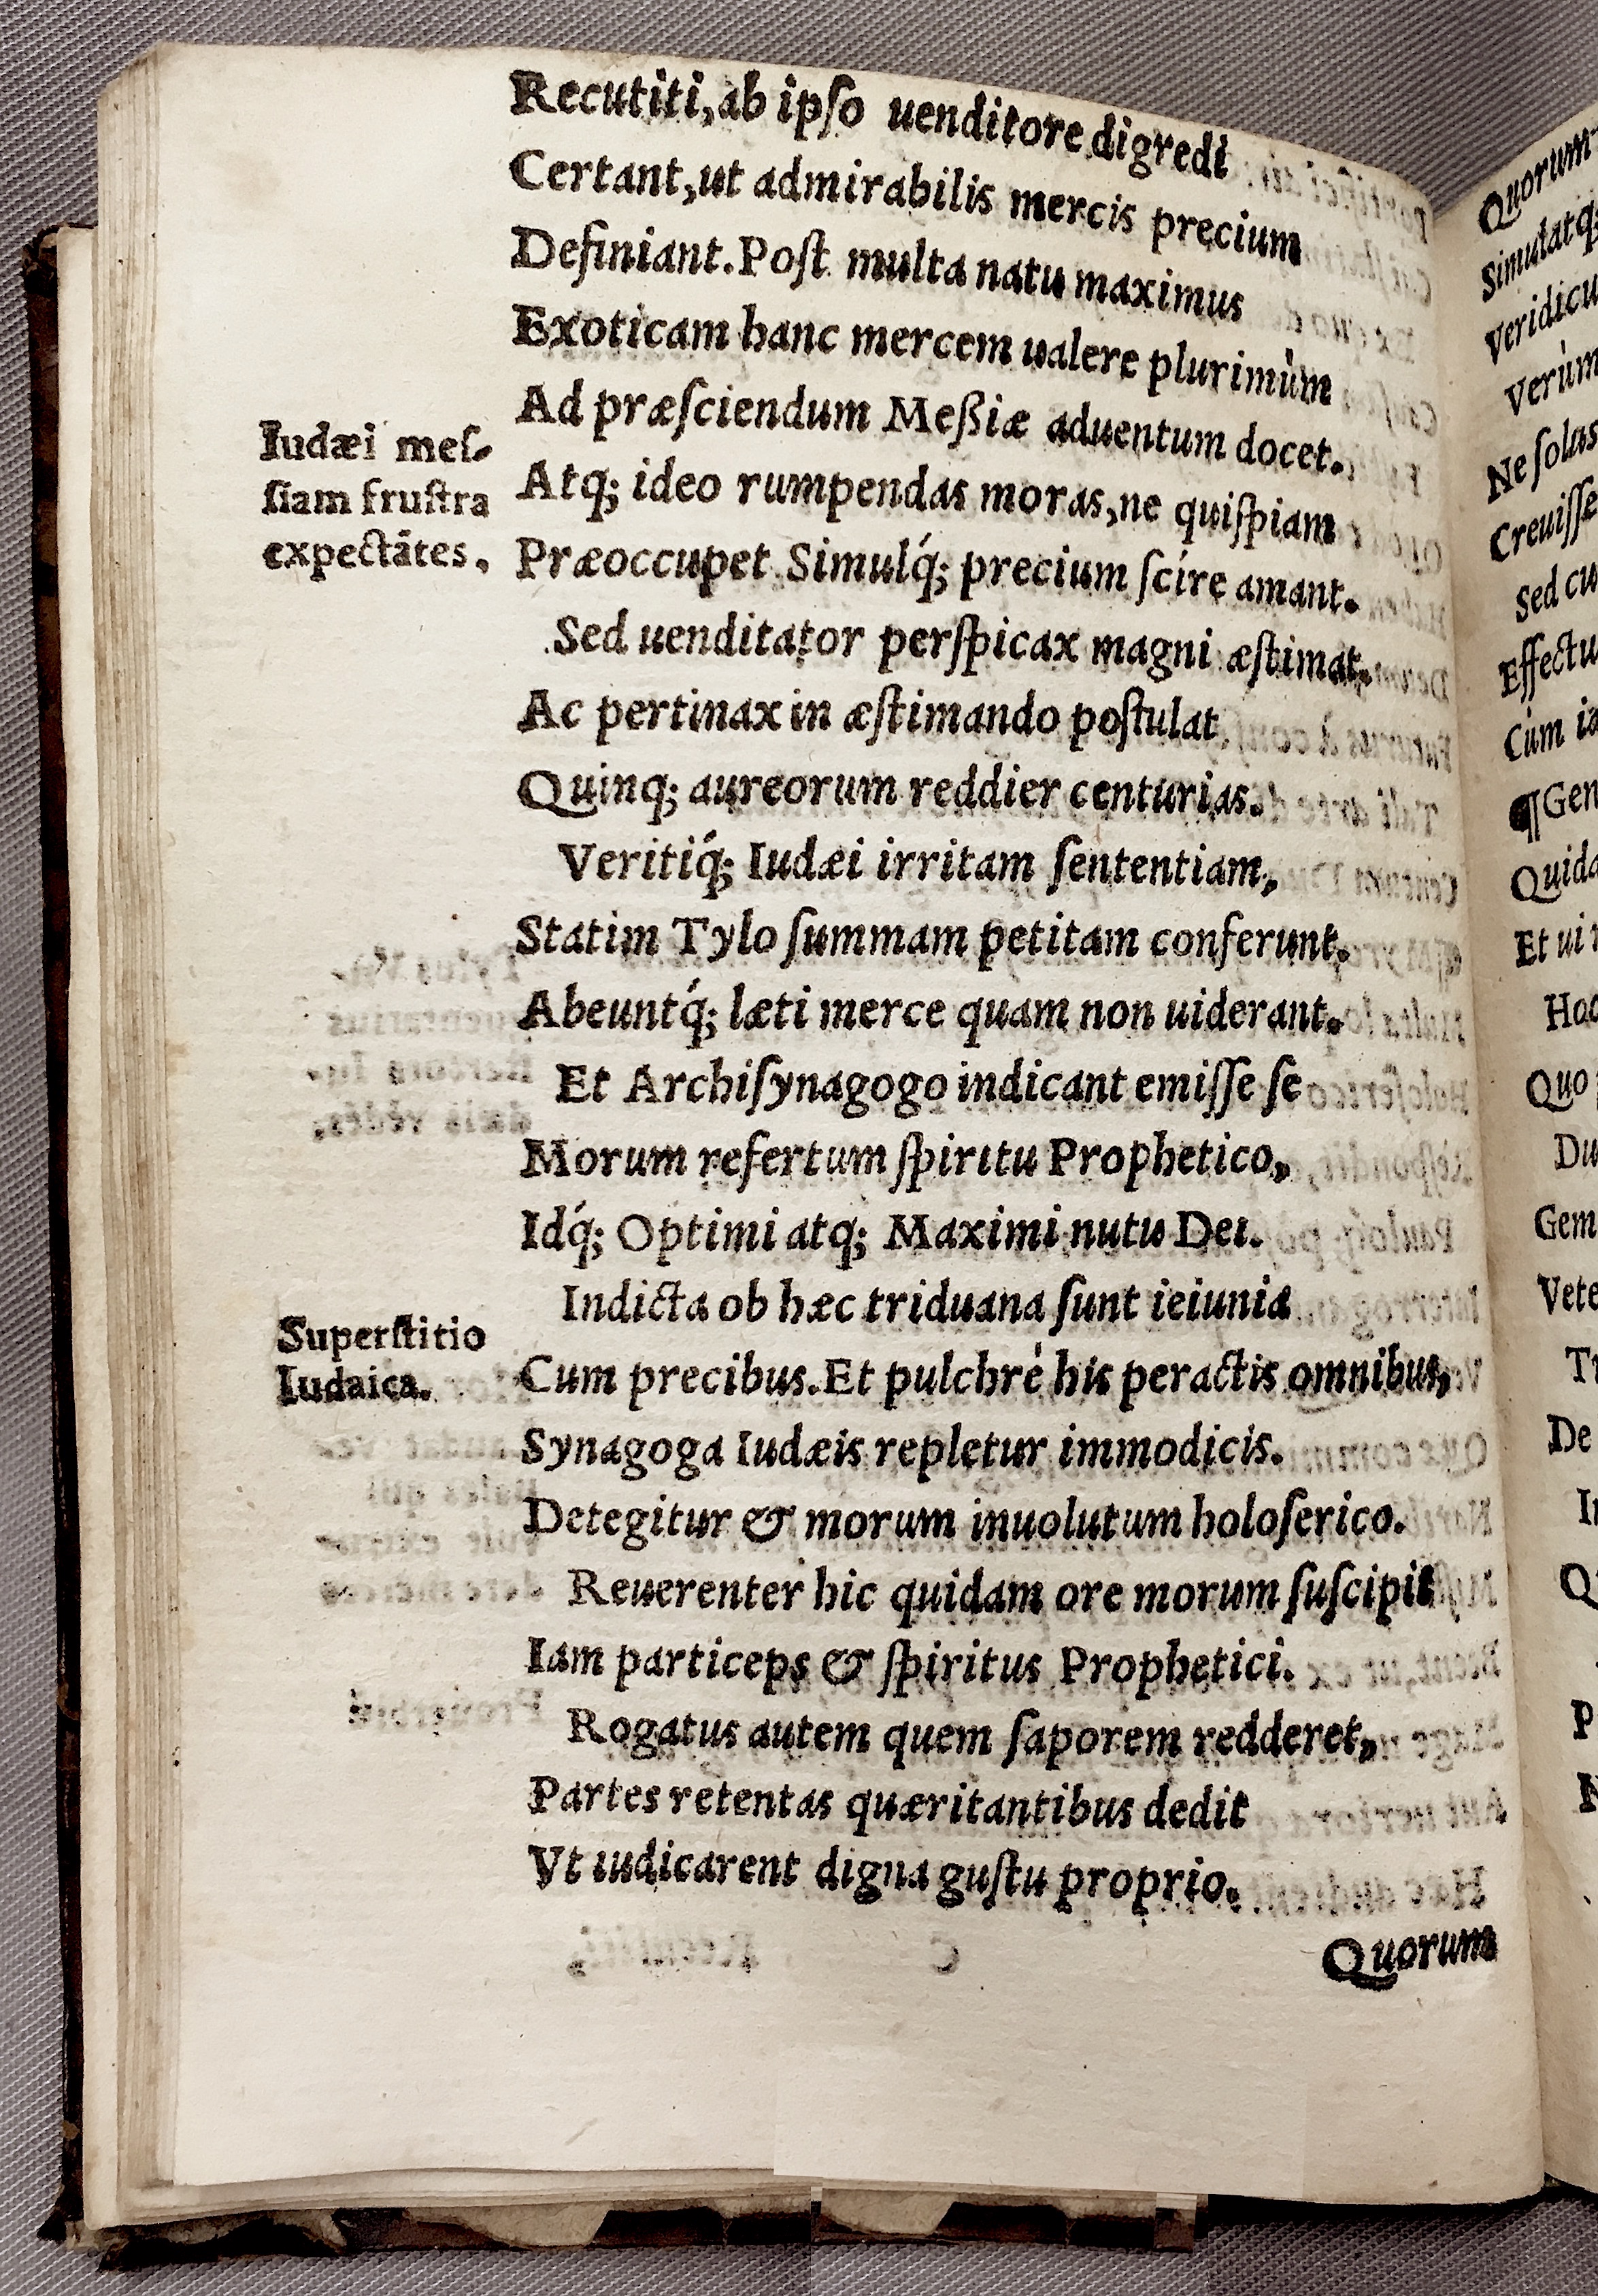 Recutiti, ab ipſo uenditore digredi
Certant, ut admirabilis mercis precium
Definiant. Poſt multa natu maximus
Exoticam hanc mercem ualere plurimùm
Ad præſciendum Meßiæ aduentum docet.
Iudæi meſ-
ſiam fruſtra
expectātes.
Atq; ideo rumpendas moras, ne quiſpiam
Præoccupet. Simulq́; precium ſcire amant.
Sed uenditator perſpicax magni æſtimat.
Ac pertinax in æſtimando poſtulat
Quinq; aureorum reddier centurias.
Veritiq́; Iudæi irritam ſententiam,
Statim Tylo ſummam petitam conferunt.
Abeuntq́; læti merce quam non uiderant.
Et Archiſynagogo indicant emiſſe ſe
Morum refertum ſpiritu Prophetico,
Idq́; Optimi atq; Maximi nutu Dei.
Indicta ob hæc triduana ſunt ieiunia
Superſtitio
Iudaica.
Cum precibus. Et pulchrè his peractis omnibus,
Synagoga Iudæis repletur immodicis.
Detegitur & morum inuolutum holoſerico.
Reuerenter hic quidam ore morum ſuſcipit
Iam particeps & ſpiritus Prophetici.
Rogatus autem quem ſaporem redderet,
Partes retentas quæritantibus dedit
Vt iudicarent digna guſtu proprio.
Quorum
Quorum
Simulatq;
Veridicu
Verùm
Ne ſolas
Creuiſſe
Sed cu
Effectu
Cùm ia
¶ Gen
Quida
Et ui
Hoc
Quo
Du
Gem
Vete
Tr
De